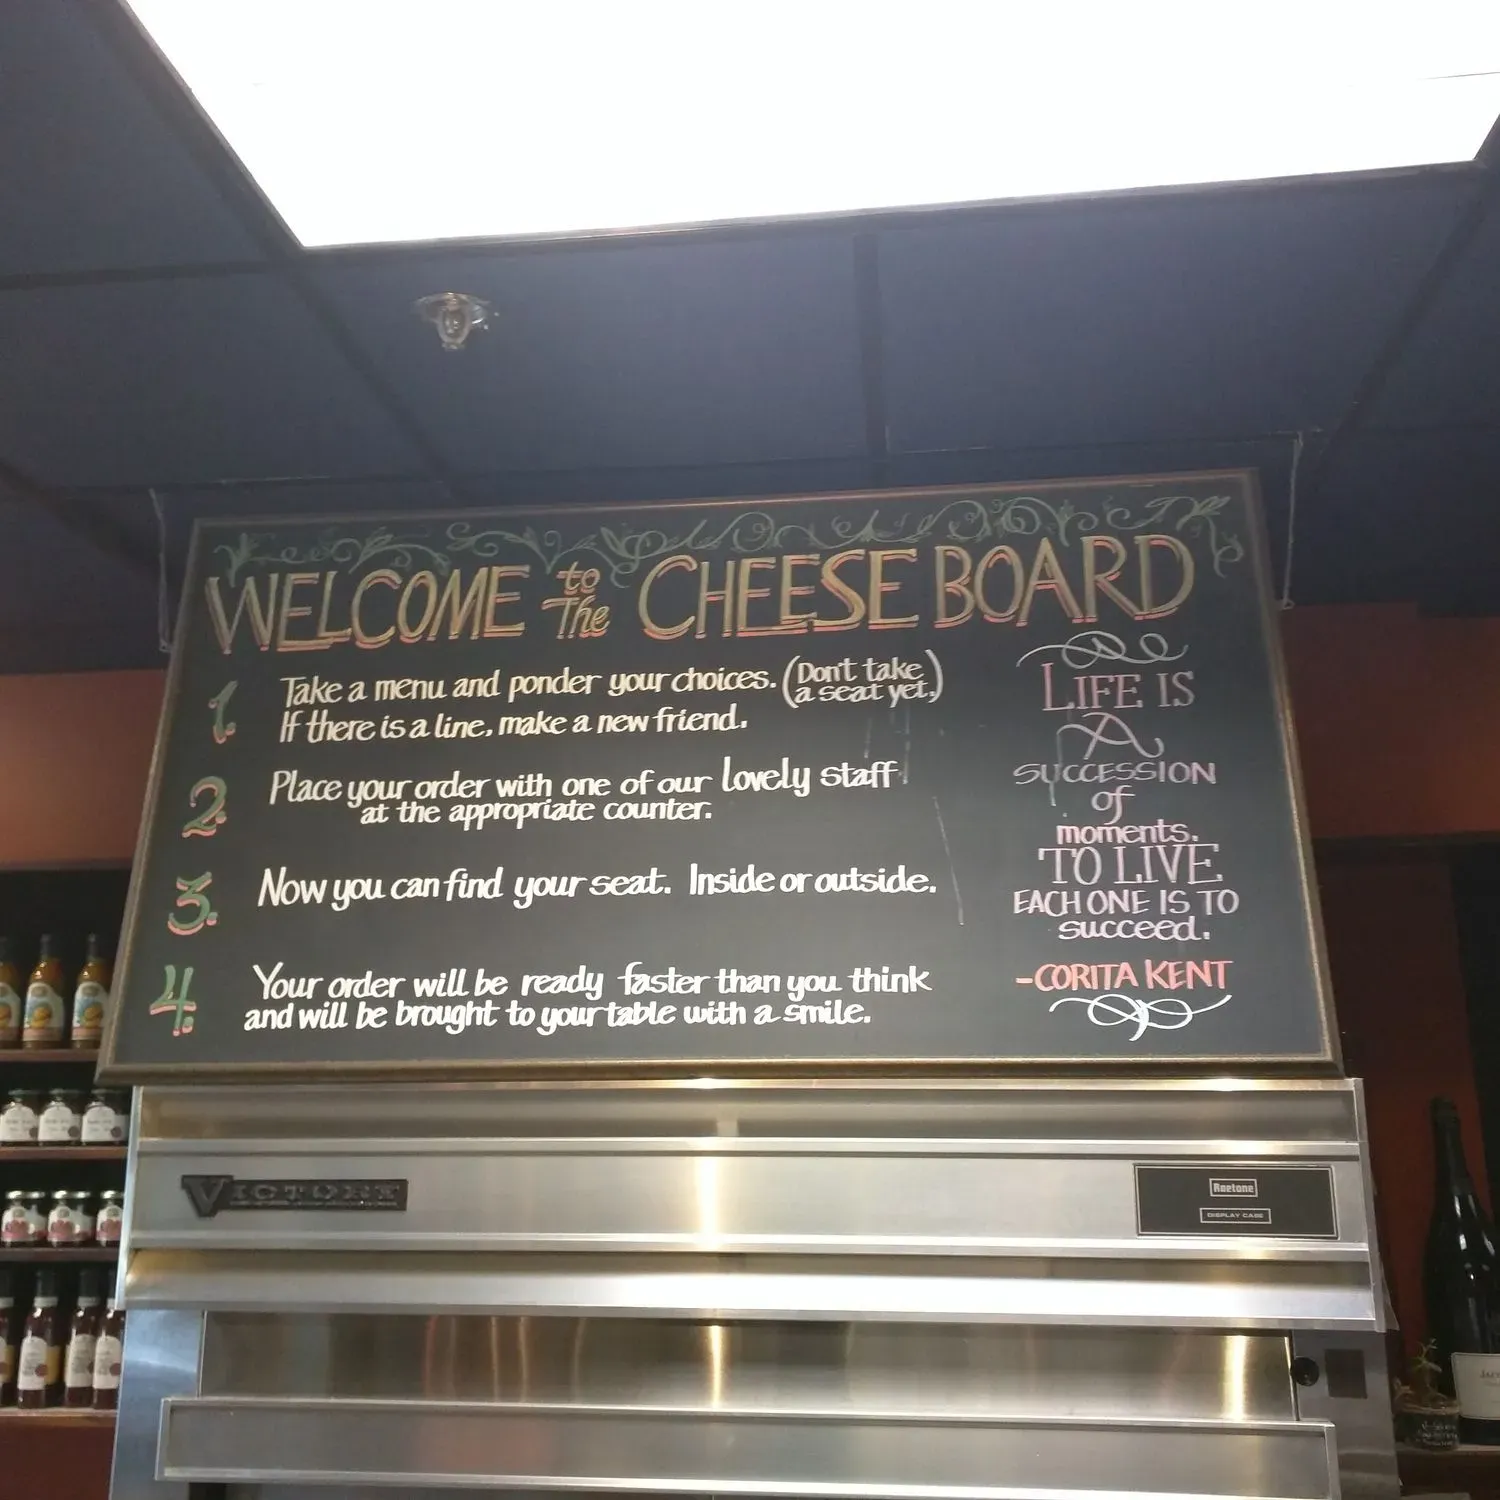 WELCOME to The CHEESE BOARD
1. Take a menu and ponder your choices. (Don't take a seat yet.)
If there is a line, make a new friend.
2. Place your order with one of our lovely staff
at the appropriate counter.
3. Now you can find your seat. Inside or outside.
4. Your order will be ready faster than you think
and will be brought to your table with a smile.
LIFE IS
A
SUCCESSION
of
moments.
TO LIVE
EACH ONE IS TO
succeed.
-CORITA KENT
VICTORY
Raetone
DISPLAY CASE